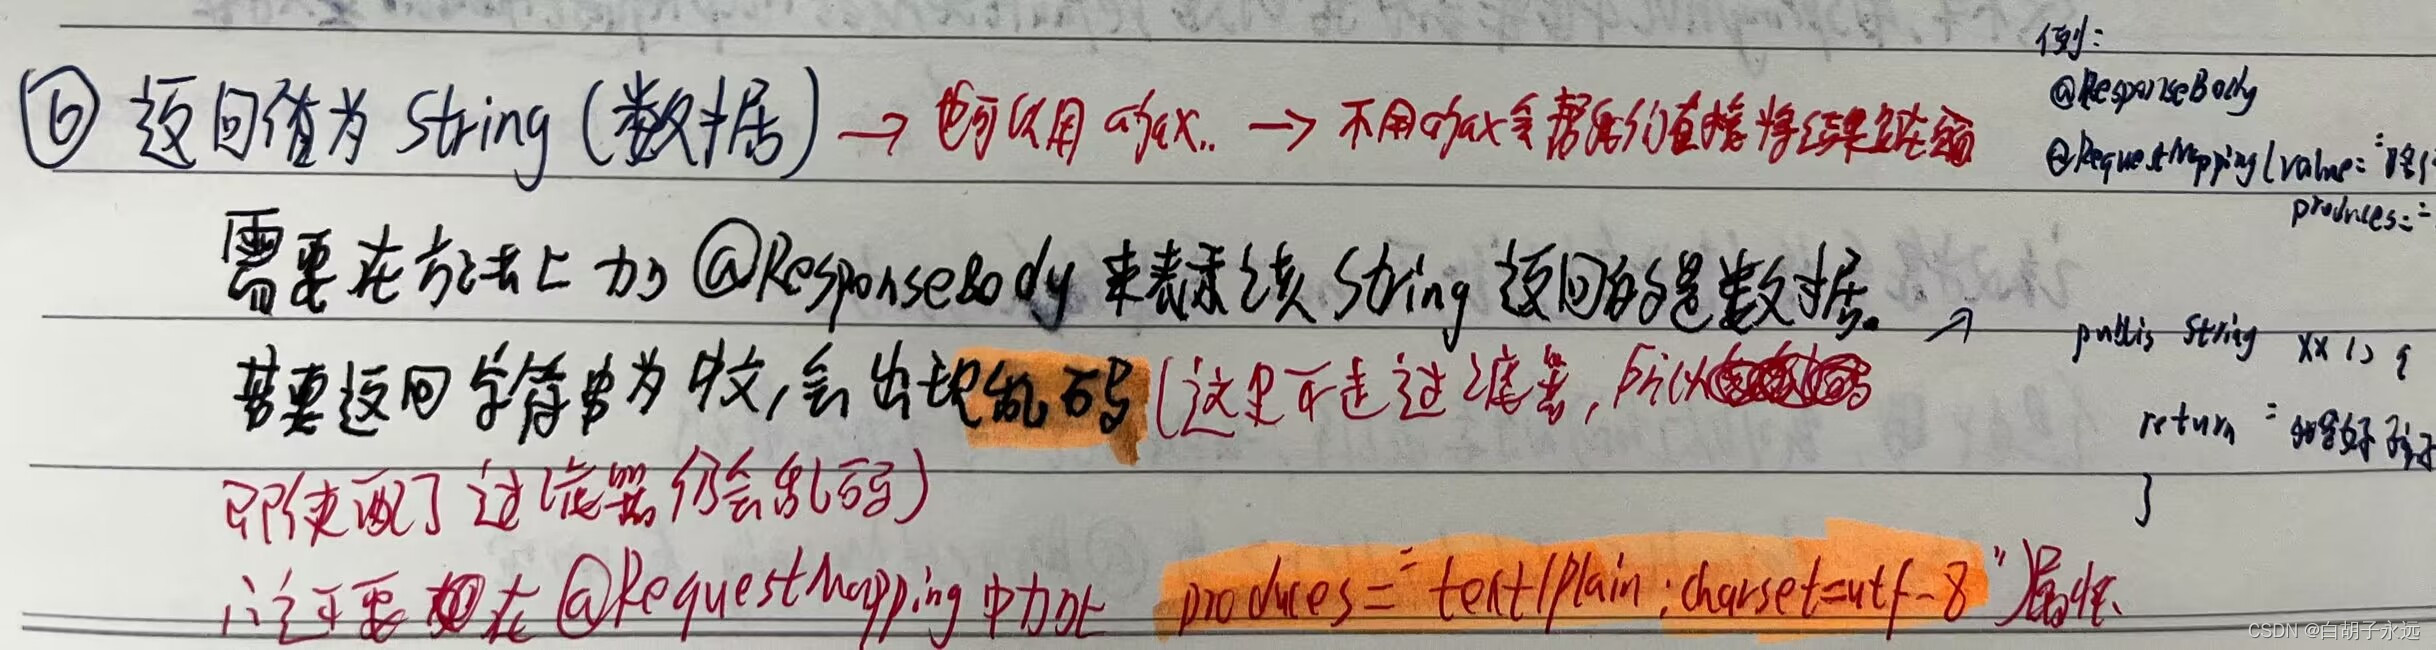 ⑥ 返回值为 String (数据) → 也可以用 ajax.. → 不用ajax会帮我们直接将结果
需要在方法上加 @ResponseBody 来表示该 String 返回的是数据。↗
若要返回字符串为中文,会出现乱码 (这里不走过滤器,所以
即使配了过滤器仍会乱码)
在 @RequestMapping 中加上 produces="text/plain;charset=utf-8"属性
例:
@ResponseBody
@RequestMapping(value="路径
produces="
public String xx () {
return "
}
CSDN @白胡子永远